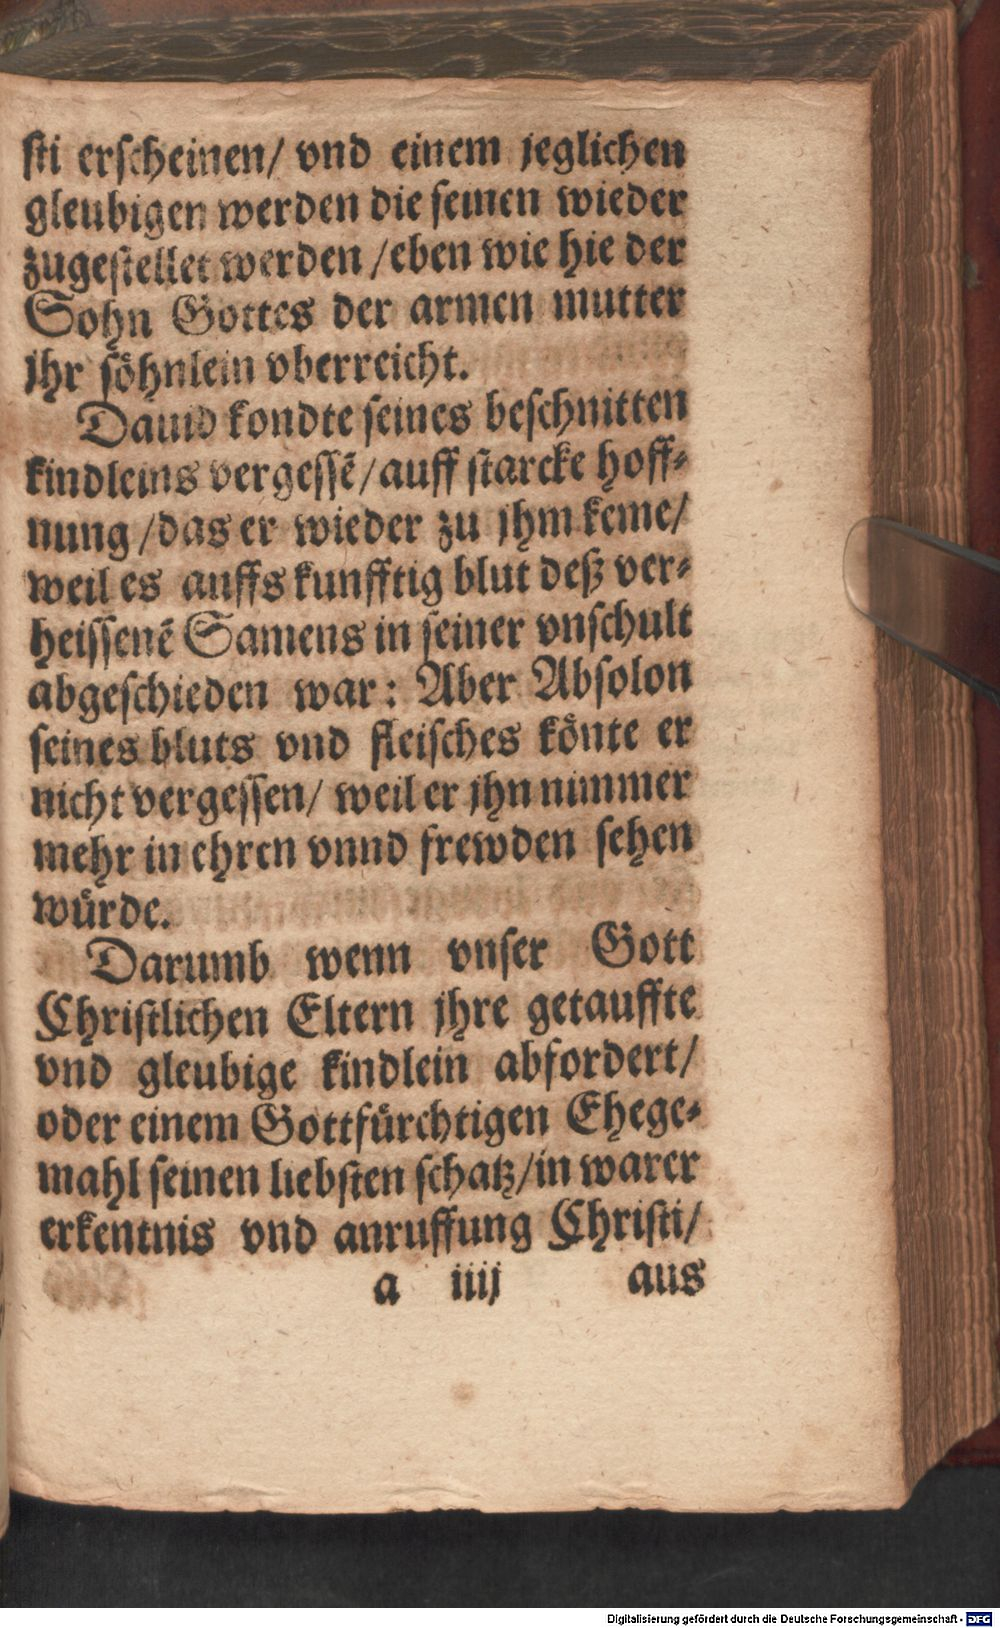 sti erscheinen/ vnd einem jeglichen
gleubigen werden die seinen wieder
zugestellet werden /eben wie hie der
Sohn Gottes der armen mutter
jhr söhnlein vberreicht.
Dauid kondte seines beschnitten
kindleins vergessē/auff starcke hoff-
nung /das er wieder zu jhm keme/
weil es auffs kunfftig blut deß ver-
heissenē Samens in seiner vnschult
abgeschieden war: Aber Absolon
seines bluts vnd fleisches könte er
nicht vergessen/ weil er jhn nimmer
mehr in ehren vnnd frewden sehen
würde.
Darumb wenn vnser Gott
Christlichen Eltern jhre getauffte
vnd gleubige kindlein abfordert/
oder einem Gottfürchtigen Ehege-
mahl seinen liebsten schatz/in warer
erkentnis vnd anruffung Christi/
a iiij aus
Digitalisierung gefördert durch die Deutsche Forschungsgemeinschaft - DFG